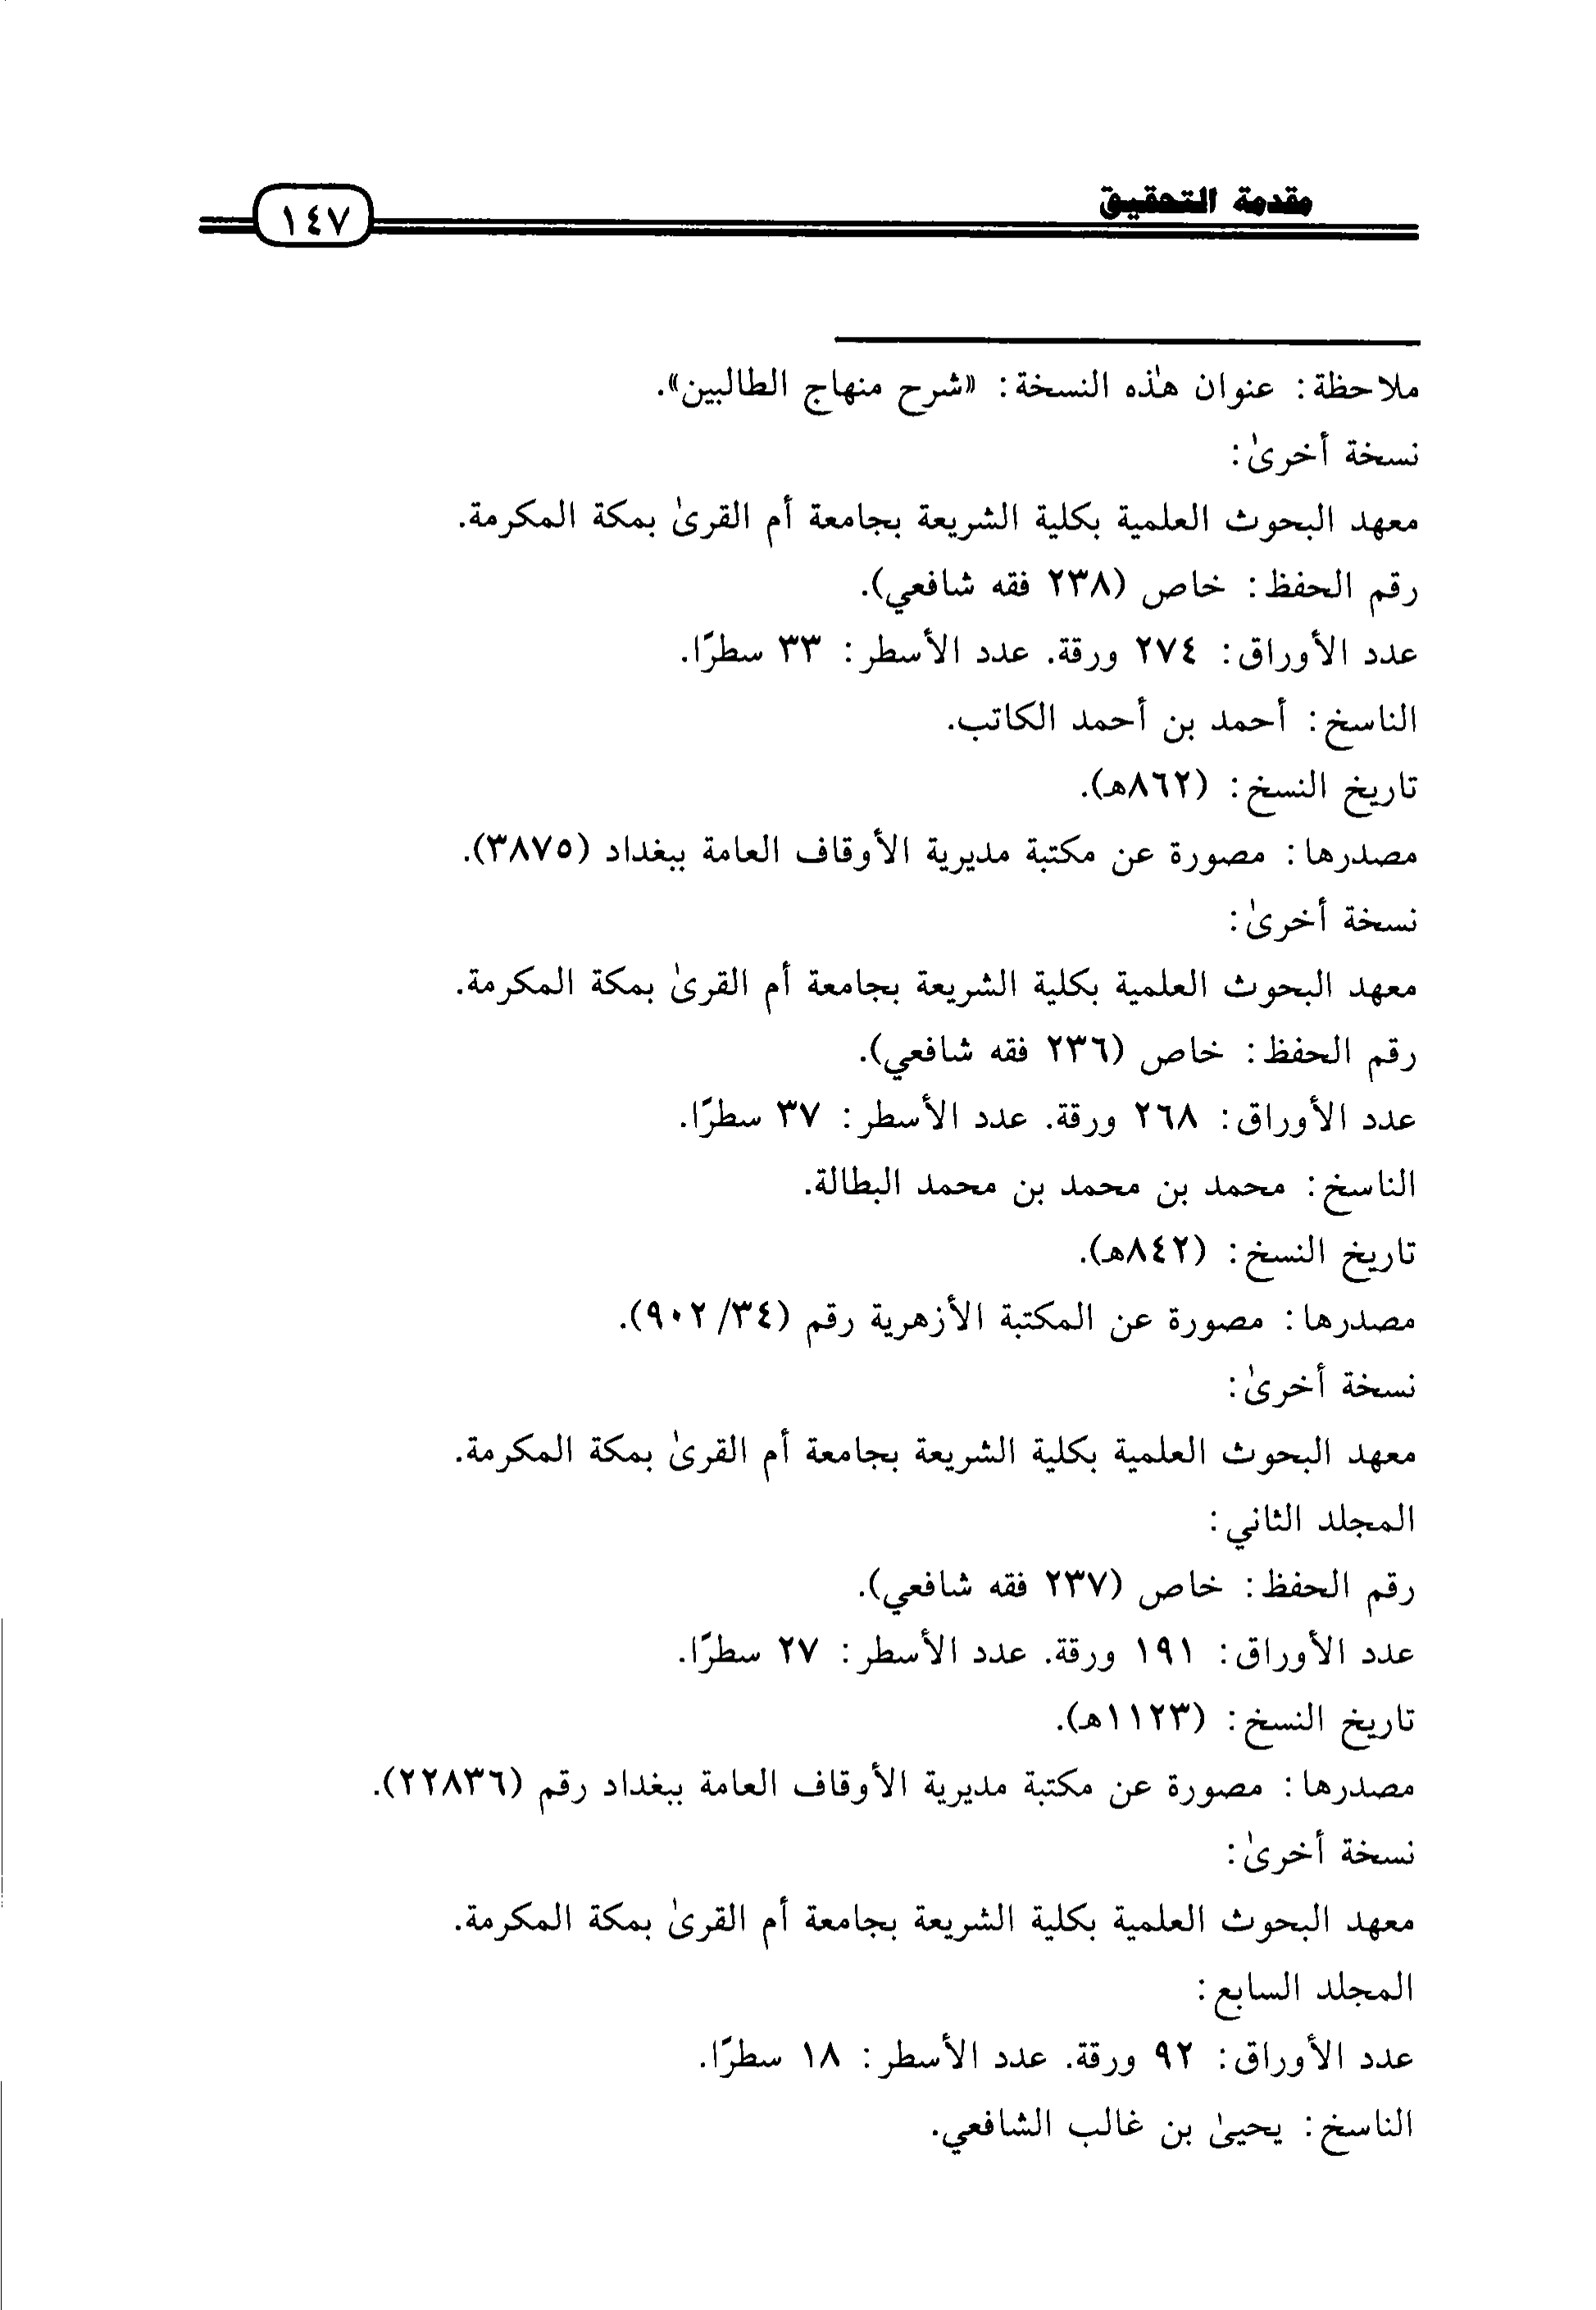 مقدمة التحقيق
١٤٧
ملاحظة: عنوان هٰذه النسخة: «شرح منهاج الطالبين».
نسخة أخرىٰ:
معهد البحوث العلمية بكلية الشريعة بجامعة أم القرىٰ بمكة المكرمة.
رقم الحفظ: خاص (٢٣٨ فقه شافعي).
عدد الأوراق: ٢٧٤ ورقة. عدد الأسطر: ٣٣ سطرًا.
الناسخ: أحمد بن أحمد الكاتب.
تاريخ النسخ: (٨٦٢هـ).
مصدرها: مصورة عن مكتبة مديرية الأوقاف العامة ببغداد (٣٨٧٥).
نسخة أخرىٰ:
معهد البحوث العلمية بكلية الشريعة بجامعة أم القرىٰ بمكة المكرمة.
رقم الحفظ: خاص (٢٣٦ فقه شافعي).
عدد الأوراق: ٢٦٨ ورقة. عدد الأسطر: ٣٧ سطرًا.
الناسخ: محمد بن محمد بن محمد البطالة.
تاريخ النسخ: (٨٤٢هـ).
مصدرها: مصورة عن المكتبة الأزهرية رقم (٣٤/ ٩٠٢).
نسخة أخرىٰ:
معهد البحوث العلمية بكلية الشريعة بجامعة أم القرىٰ بمكة المكرمة.
المجلد الثاني:
رقم الحفظ: خاص (٢٣٧ فقه شافعي).
عدد الأوراق: ١٩١ ورقة. عدد الأسطر: ٢٧ سطرًا.
تاريخ النسخ: (١١٢٣هـ).
مصدرها: مصورة عن مكتبة مديرية الأوقاف العامة ببغداد رقم (٢٢٨٣٦).
نسخة أخرىٰ:
معهد البحوث العلمية بكلية الشريعة بجامعة أم القرىٰ بمكة المكرمة.
المجلد السابع:
عدد الأوراق: ٩٢ ورقة. عدد الأسطر: ١٨ سطرًا.
الناسخ: يحيىٰ بن غالب الشافعي.